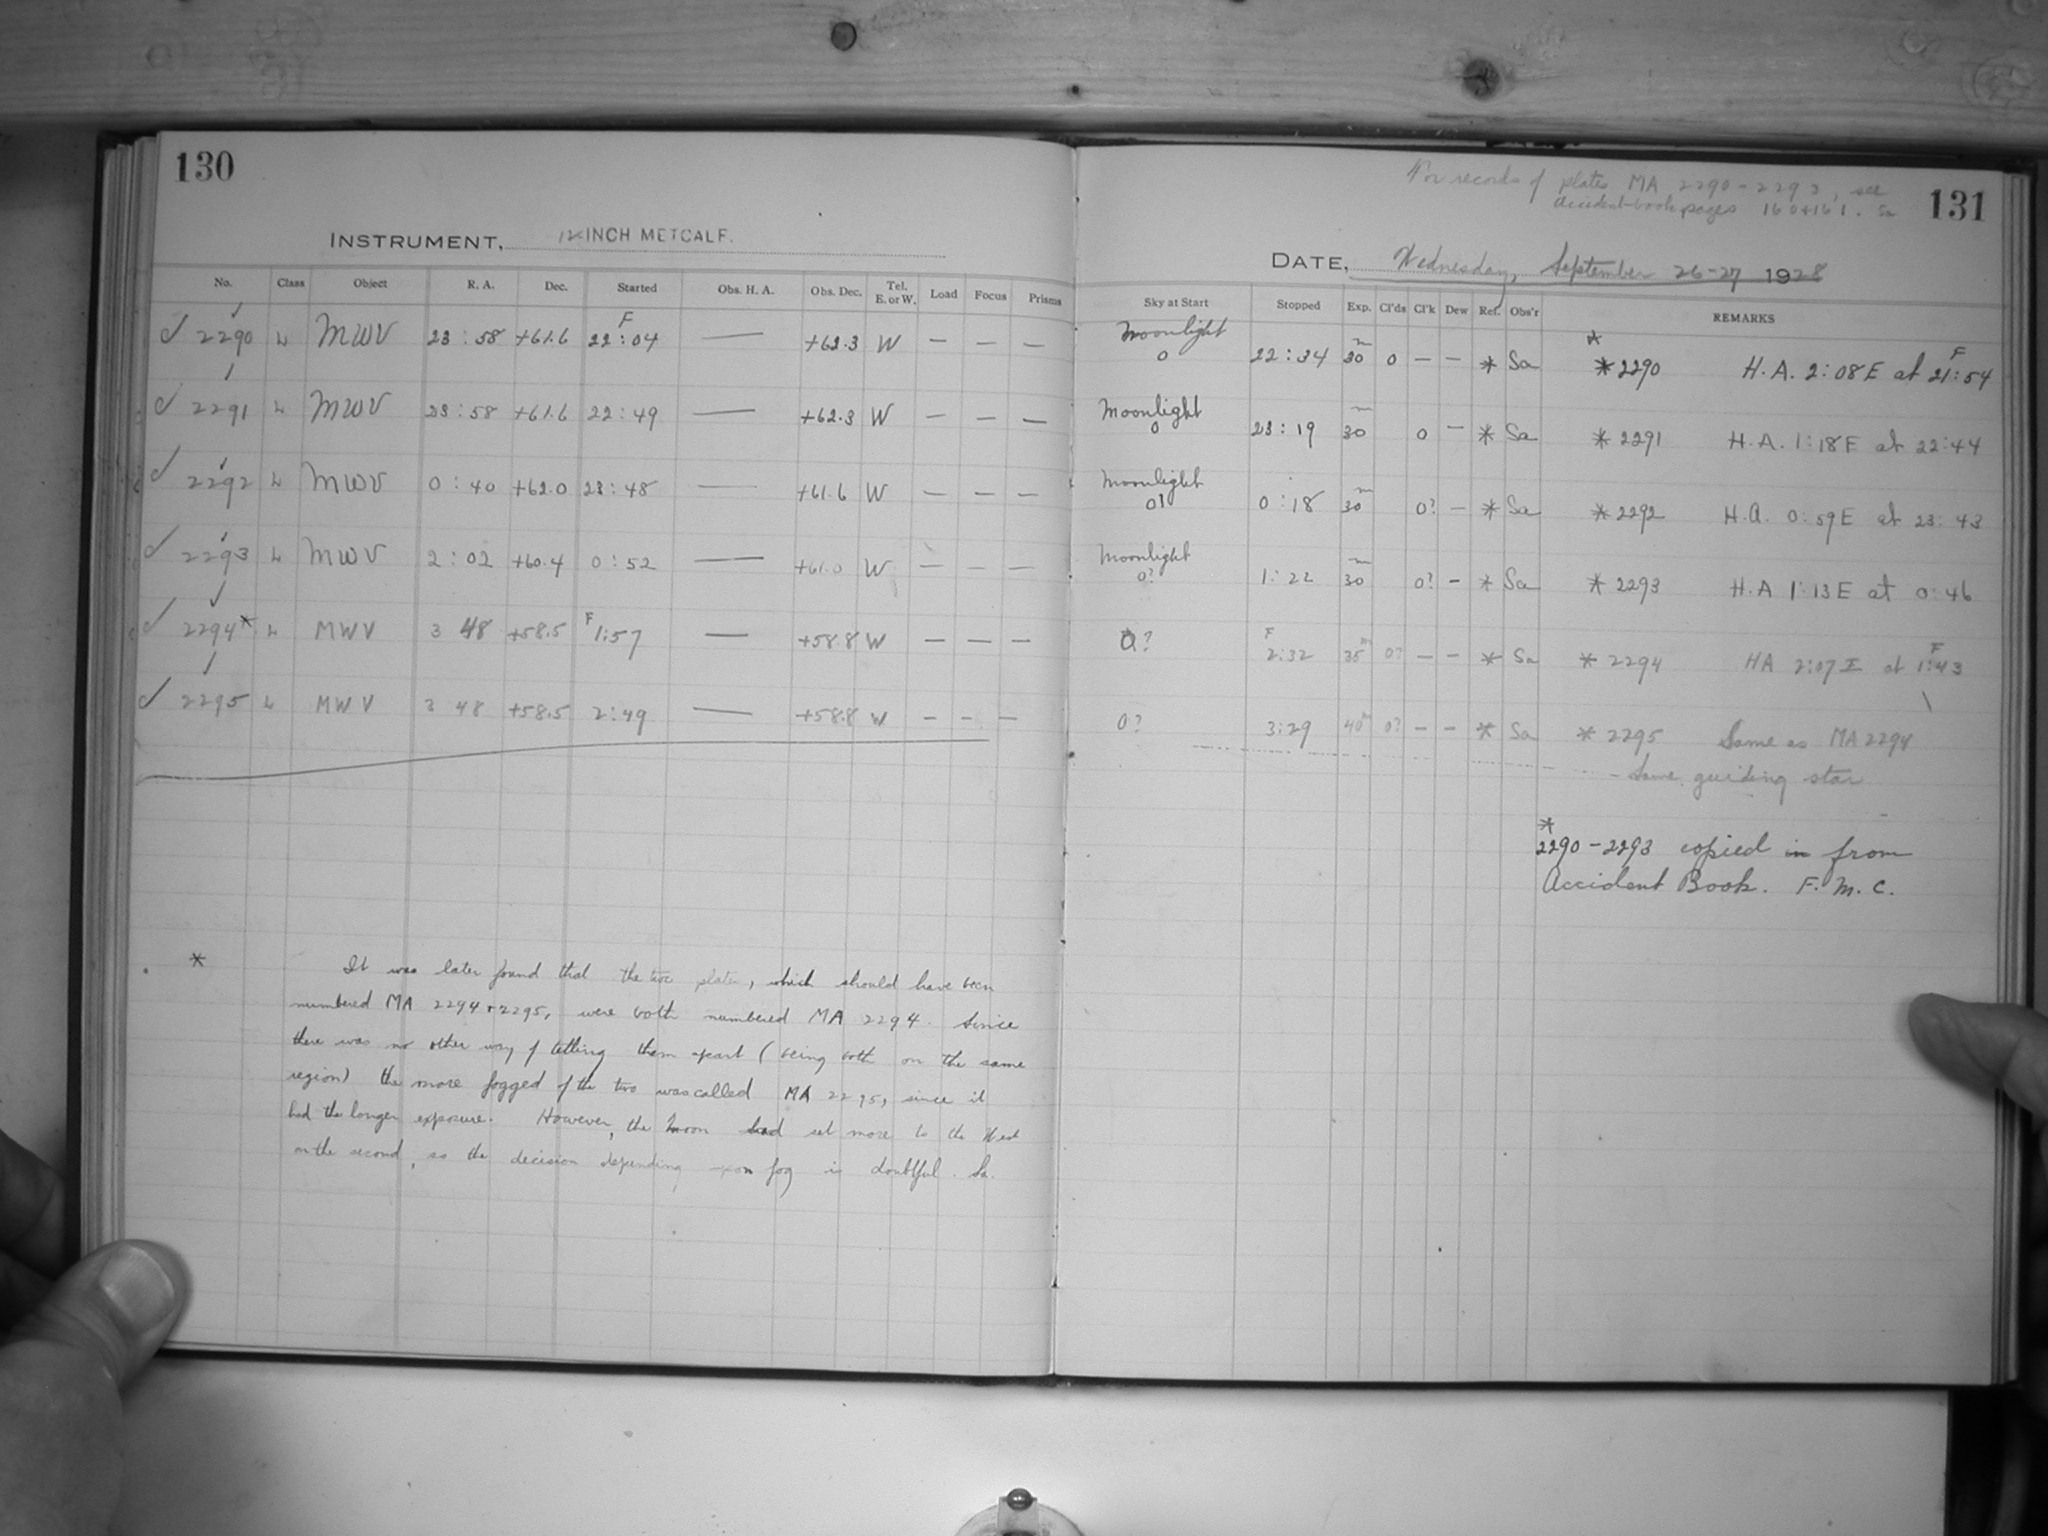 130
INSTRUMENT, 12 INCH METCALF.
No. Class Object R. A. Dec. Started Obs. H. A. Obs. Dec. Tel. E. or W. Load Focus Prisms
✓ 2290 L MWV 23 : 58 +61.6 22 : 04 F — +62.3 W — — —
✓ 2291 L MWV 23 : 58 +61.6 22 : 49 — +62.3 W — — —
✓ 2292 L MWV 0 : 40 +62.0 23 : 48 — +61.6 W — — —
✓ 2293 L MWV 2 : 02 +60.4 0 : 52 — +61.0 W — — —
✓ 2294* L MWV 3 48 +58.5 F 1:57 — +58.8 W — — —
✓ 2295 L MWV 3 48 +58.5 2:49 — +58.8 W — — —
* It was later found that the two plates, which should have been
numbered MA 2294 + 2295, were both numbered MA 2294. Since
there was no other way of telling them apart (being both on the same
region) the more fogged of the two was called MA 2295, since it
had the longer exposure. However, the Moon had set more to the West
on the second, so the decision depending upon fog is doubtful. Sa.
For records of plates MA 2290-2293, see
accident-book pages 160+161. Sa
131
DATE, Wednesday, September 26-27 1928
Sky at Start Stopped Exp. Cl'ds Cl'k Dew Ref. Obs'r REMARKS
Moonlight 0 22 : 34 30 m 0 — — * Sa * *2290 H.A. 2:08 E at 21:54 F
Moonlight 0 23 : 19 30 m 0 — * Sa * 2291 H.A. 1:18 E at 22:44
Moonlight 0 : 18 30 m 0? — * Sa * 2292 H.A. 0:59 E at 23:43
Moonlight 0? 1 : 22 30 m 0? — * Sa * 2293 H.A 1:13 E at 0:46
0? F 2:32 35 m 0? — — * Sa * 2294 HA 2:07 E at 1:43 F
0? 3:29 40 m 0? — — * Sa * 2295 Same as MA 2294
- Same guiding star
*
2290-2293 copied in from
Accident Book. F.M.C.